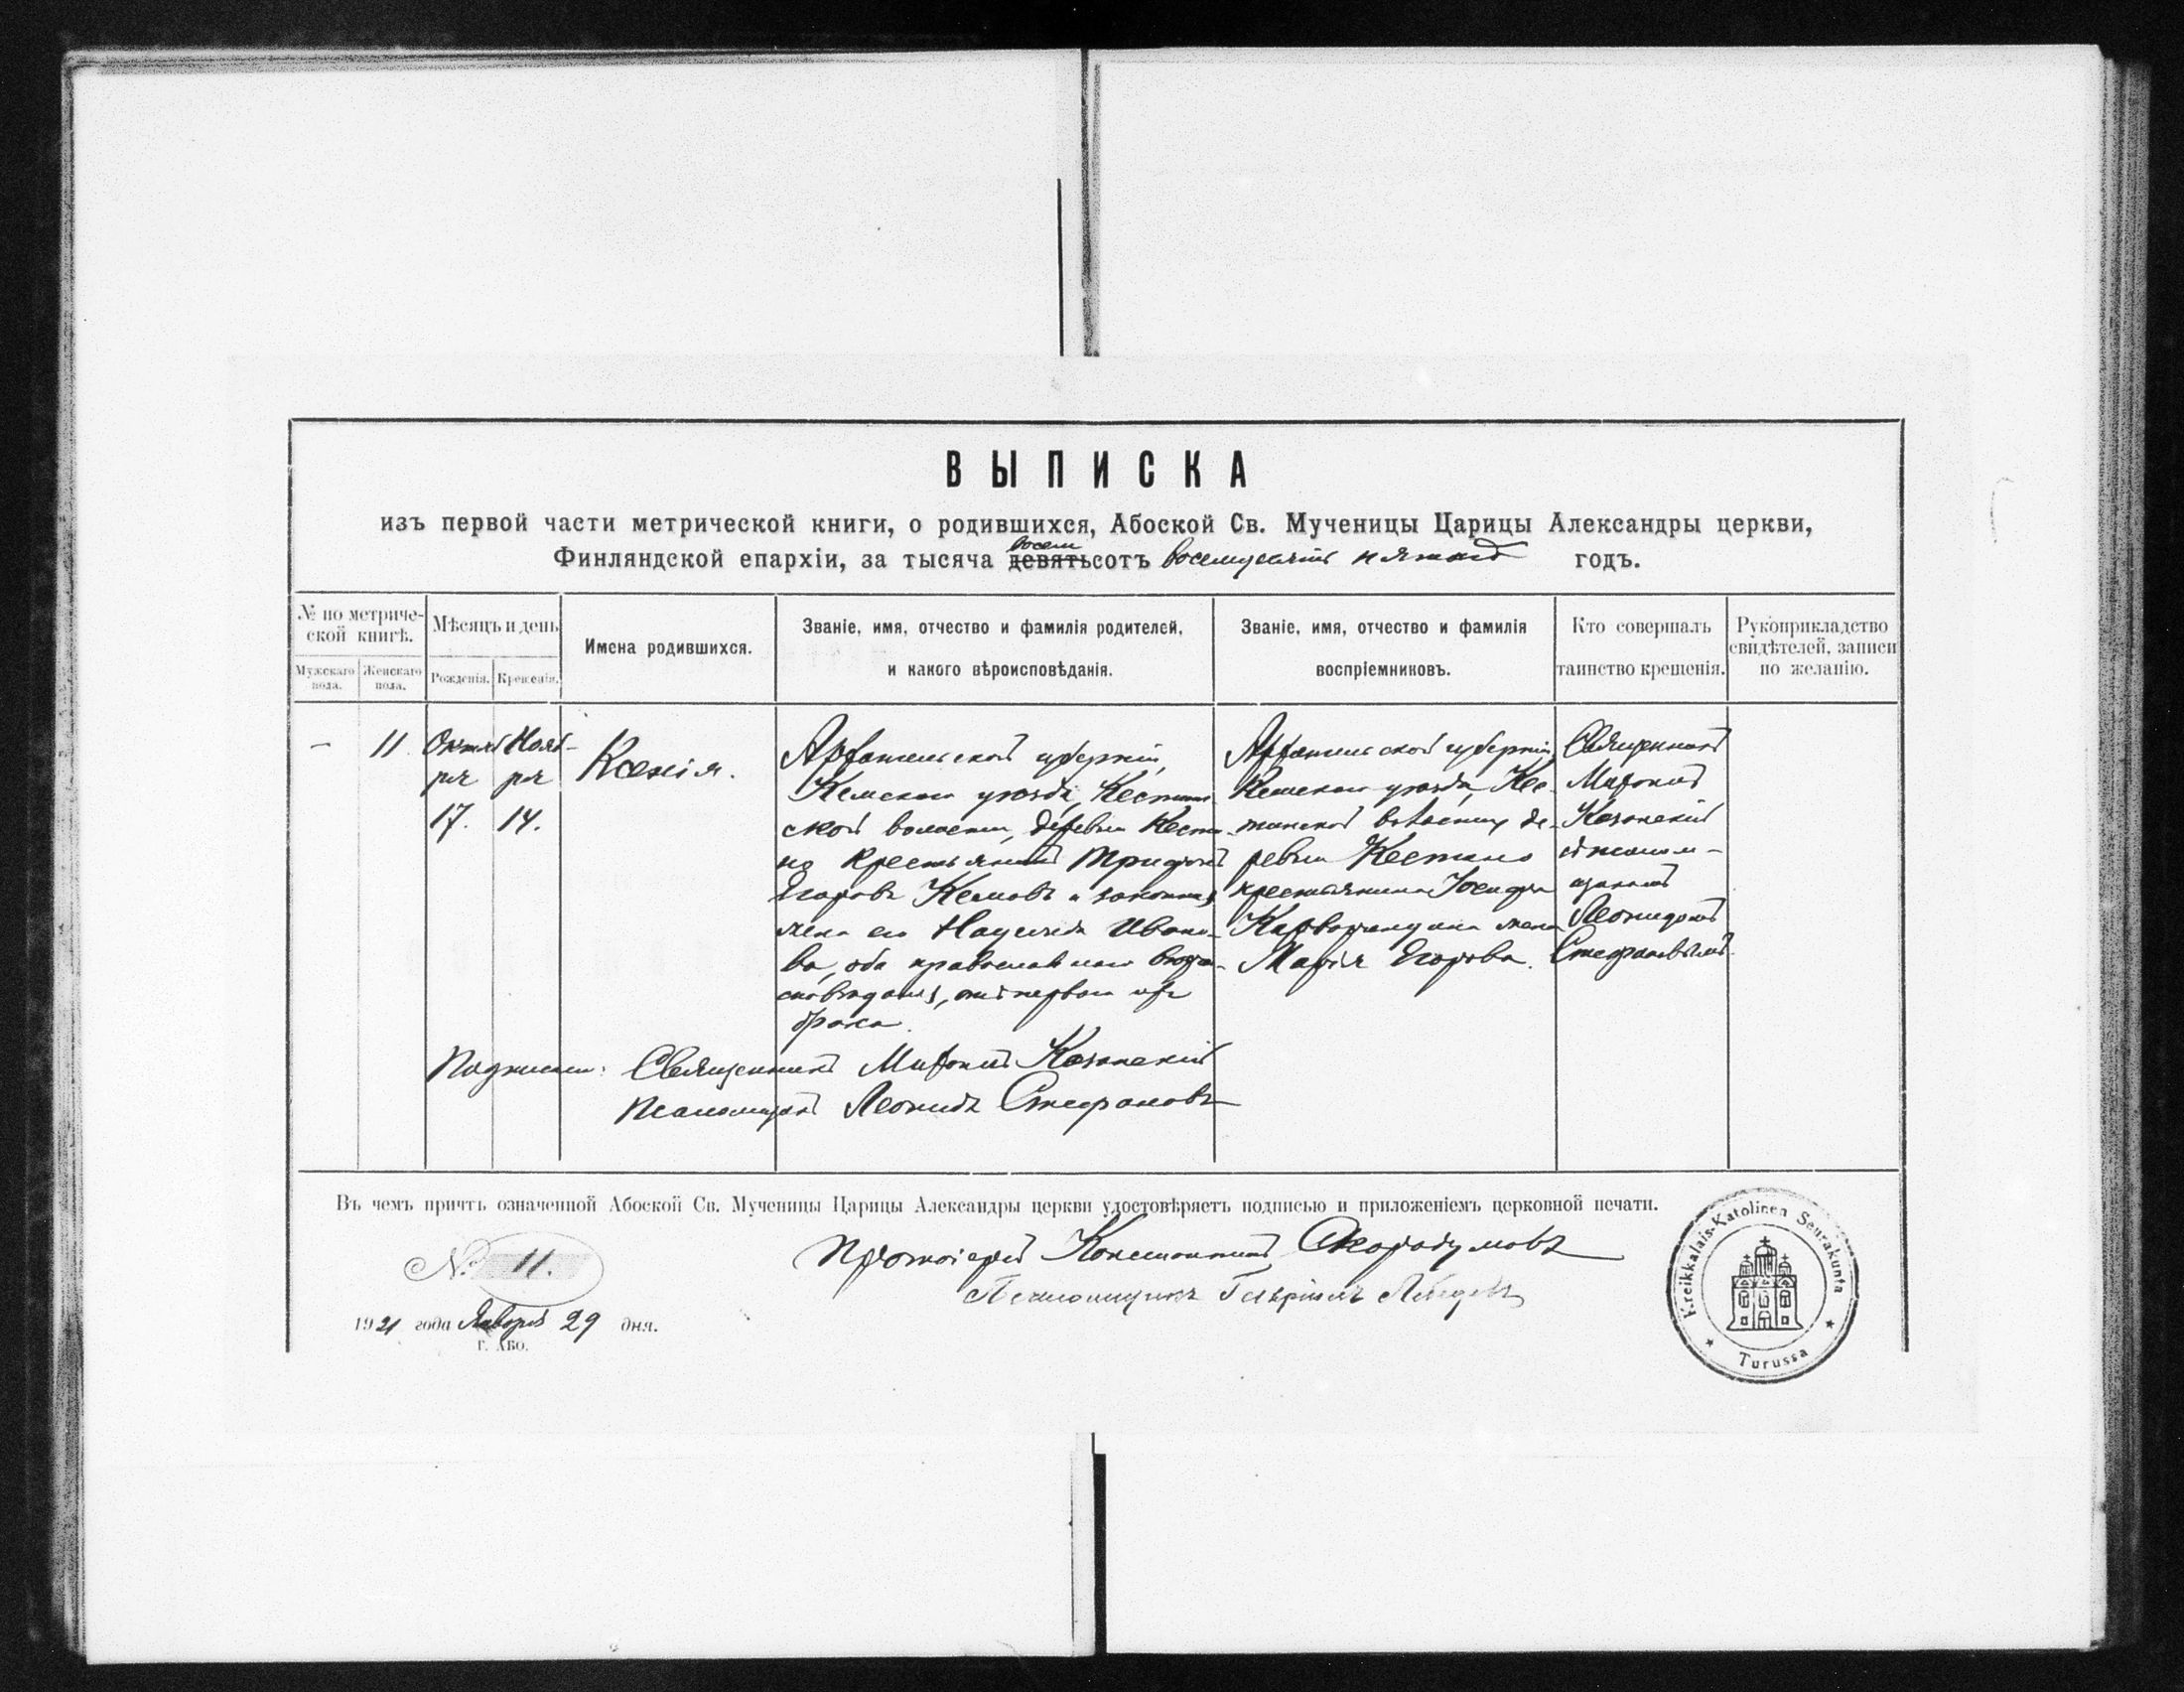 ВЫПИСКА
изъ первой части метрической книги, о родившихся, Абоской Св. Мученицы Царицы Александры церкви,
восем
Финляндской епархіи, за тысяча девятьсотъ восемьдесятъ пятый годъ.
№ по метриче-
ской книгѣ.
Мужскаго
пола.
Женскаго
пола.
Мѣсяцъ и день
Рожденія.
Крещенія.
Имена родившихся.
Званіе, имя, отчество и фамилія родителей,
и какого вѣроисповѣданія.
Званіе, имя, отчество и фамилія
воспріемниковъ.
Кто совершалъ
таинство крещенія.
Рукоприкладство
свидѣтелей, записи
по желанію.
–
11
Октяб
ря
17.
Нояб-
ря
14.
Ксенія.
Архангельской губерніи,
Кемскаго уѣзда, Кестень-
ской волости, деревни Кесте-
но крестьянинъ Трифонъ
Егоровъ Кемовъ и законная
жена его Ивано-
ва, оба православнаго вѣрои-
сповѣданія, отъ перваго
брака.
Архангельской губерніи,
Кемскаго уѣзда, Кес-
тенской волости, де-
ревни Кестено
крестьянина Іосифа
жена
Марія Егорова.
Священникъ
Казанскій
съ псалом-
щикомъ
Леонидомъ
Стефановымъ.
Подписали: Священникъ Казанскій
Псаломщикъ Леонидъ Стефановъ
Въ чемъ причтъ означенной Абоской Св. Мученицы Царицы Александры церкви удостовѣряетъ подписью и приложеніемъ церковной печати.
№ 11.
Протоіерей Константинъ Скородумовъ
Псаломщикъ Гавріилъ Лебедевъ
1921 года Января 29 дня.
г. Або.
Kreikkalais-Katolinen Seurakunta
Turussa